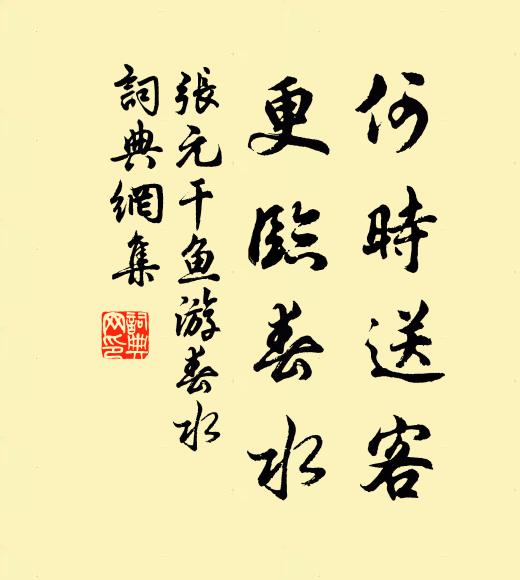 何時送客
更臨春水
張元干鱼游春水
詞典網集
詞典
网印